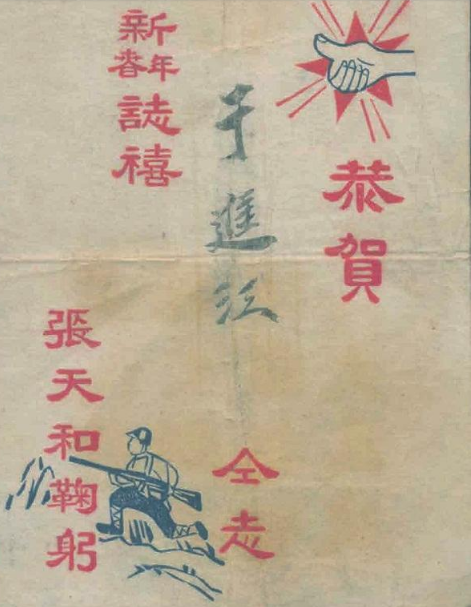 恭賀
于進江
仝志
新年春誌禧
張天和鞠躬